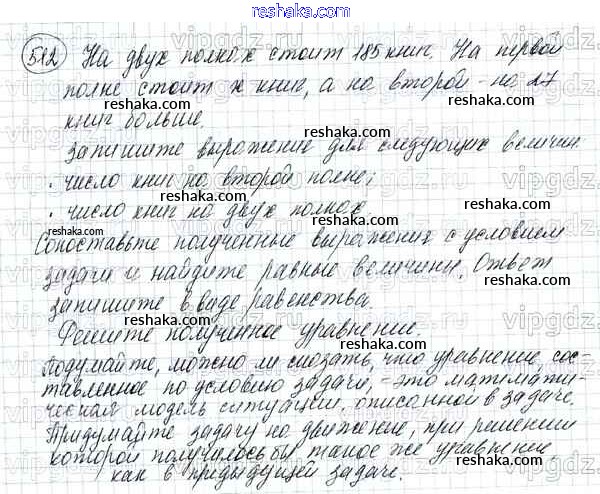 reshaka.com
512 На двух полках стоит 185 книг. На первой
полке стоит х книг, а на второй - на 27
reshaka.com
reshaka.com
книг больше.
reshaka.com
Запишите выражение для следующих величин:
· число книг на второй полке;
reshaka.com
· число книг на двух полках
reshaka.com
Сопоставьте полученные выражения с условием
reshaka.com
задачи и найдите равные величины. Ответ
reshaka.com
запишите в виде равенства.
reshaka.com
Решите полученное уравнение.
reshaka.com
Подумайте, можно ли сказать, что уравнение, сос-
тавленное по условию задачи, - это математи-
reshaka.com
ческая модель ситуации, описанной в задаче.
reshaka.com
Придумайте задачу на движение, при решении
которой получилось бы такое же уравнение,
reshaka.com
как в предыдущей задаче.